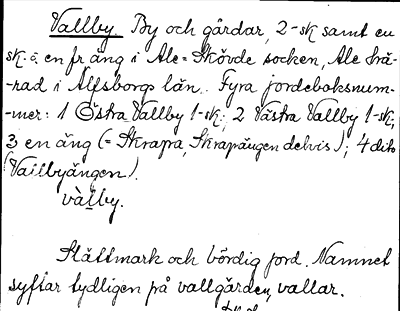 Vallby. By och gårdar, 2-sk samt en
sk. o. en fr äng i Ale-Skövde socken, Ale hä-
-rad i Älfsborgs län. Fyra jordeboksnum-
-mer: 1 Östra Vallby 1-sk; 2 Västra Vallby 1-sk,
3 en äng (= Skrapa, Skrapängen delvis); 4 dito
(Vallbyängen).
vàlby.
Slättmark och bördig jord. Namnet
syftar tydligen på vallgården, vallar.